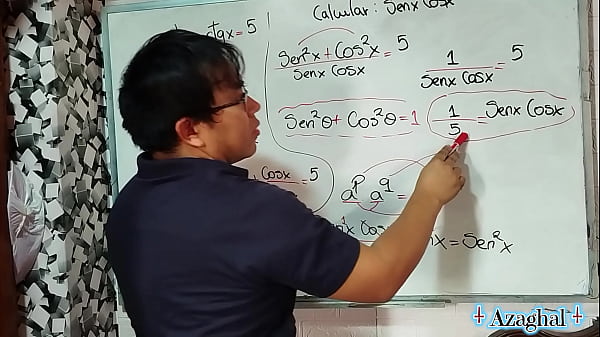 Calcular: Senx Cosx
ctgx = 5
Sen²x + Cos²x = 5
Senx Cosx
1 = 5
Senx Cosx
Sen²θ + Cos²θ = 1
1 = Senx Cosx
5
Cosx = 5
aᵖ a^q =
x = Sen²x
Azaghal